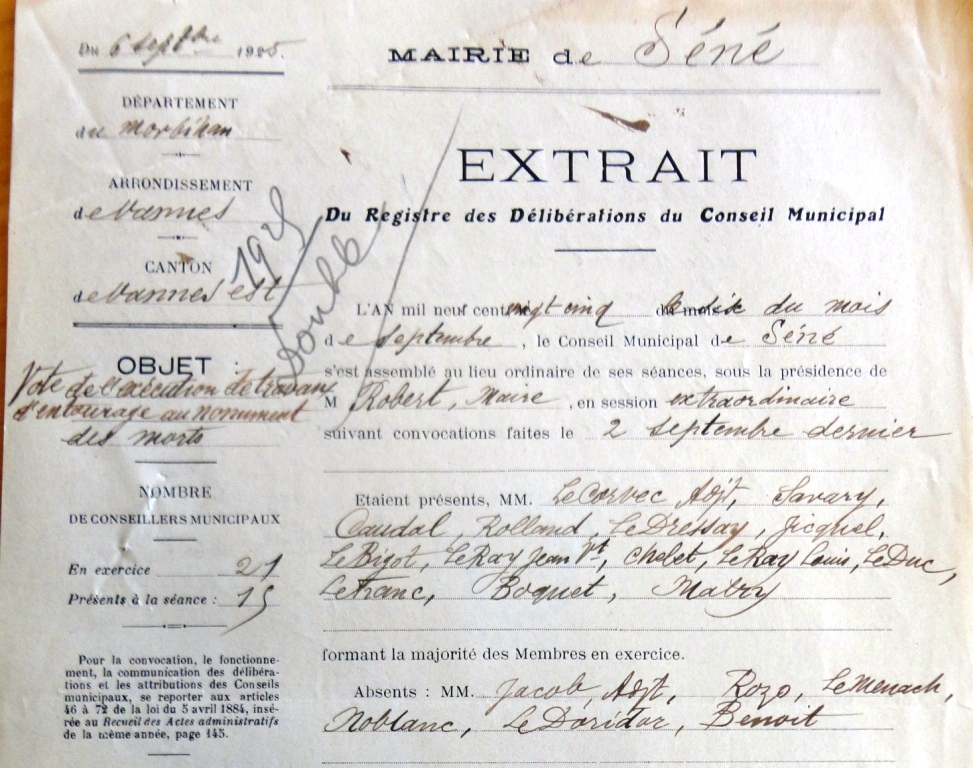 Du 6 septbre 1925.
MAIRIE de Séné
DÉPARTEMENT
du Morbihan
ARRONDISSEMENT
de Vannes
CANTON
de Vannes est
1925
Double
OBJET :
Vote de l'exécution de travaux
d'entourage au monument
des morts
NOMBRE
DE CONSEILLERS MUNICIPAUX
En exercice 21
Présents à la séance : 15
Pour la convocation, le fonctionne-
ment, la communication des délibéra-
tions et les attributions des Conseils
municipaux, se reporter aux articles
46 à 72 de la loi du 5 avril 1884, insé-
rée au Recueil des Actes administratifs
de la même année, page 145.
EXTRAIT
Du Registre des Délibérations du Conseil Municipal
L'AN mil neuf cent vingt cinq le six du mois
de septembre, le Conseil Municipal de Séné
s'est assemblé au lieu ordinaire de ses séances, sous la présidence de
M Robert, Maire, en session extraordinaire
suivant convocations faites le 2 septembre dernier
Etaient présents, MM. Le Corvec Adjt, Savary,
Caudal, Rolland, Le Dressay, Jicquel,
Le Bigot, Le Ray Jean Vt, Chelet, Le Ray Louis, Le Duc,
Lefranc, Boquet, Matry
formant la majorité des Membres en exercice.
Absents : MM. Jacob, Adjt, Rozo, Le Menach,
Noblanc, Le Doridor, Benoit